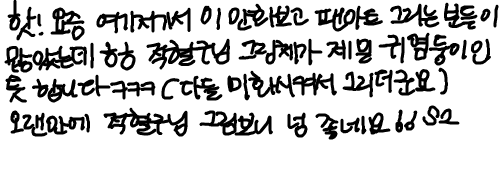 핫! 요즘 여기저기서 이 만화보고 팬아트 그리는 분들이
많아졌는데 흐흐 적혈구님 그림체가 제일 귀염둥이인
듯 합니다ㅋㅋㅋ (다들 미화시켜서 그리더군요)
오랜만에 적혈구님 그림보니 넘 좋네요 66 S2